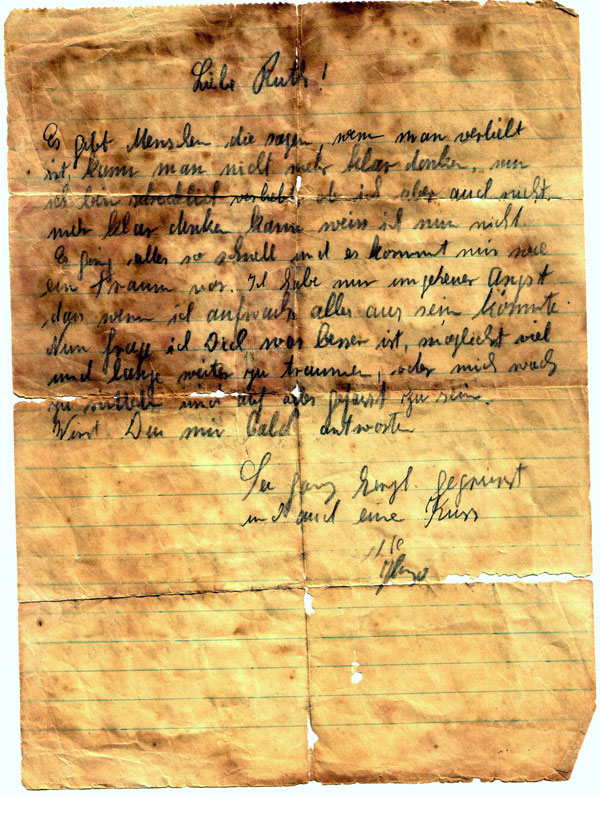 Liebe Ruth!
Es gibt Menschen die sagen, wenn man verliebt
ist, kann man nicht mehr klar denken, nun
ich bin schrecklich verliebt, ob ich aber auch nicht
mehr klar denken kann weiss ich nun nicht.
Es ging alles so schnell und es kommt mir wie
ein Traum vor. Ich habe nur ungeheuer Angst
dass wenn ich aufwache alles aus sein könnte.
Nun frage ich Dich, was besser ist, möglichst viel
und lange weiter zu träumen, oder mich wach
zu rütteln und auf alles gefasst zu sein.
Wirst Du mir bald antworten
Sei ganz herzl gegrüsst
und auch eine Kuss